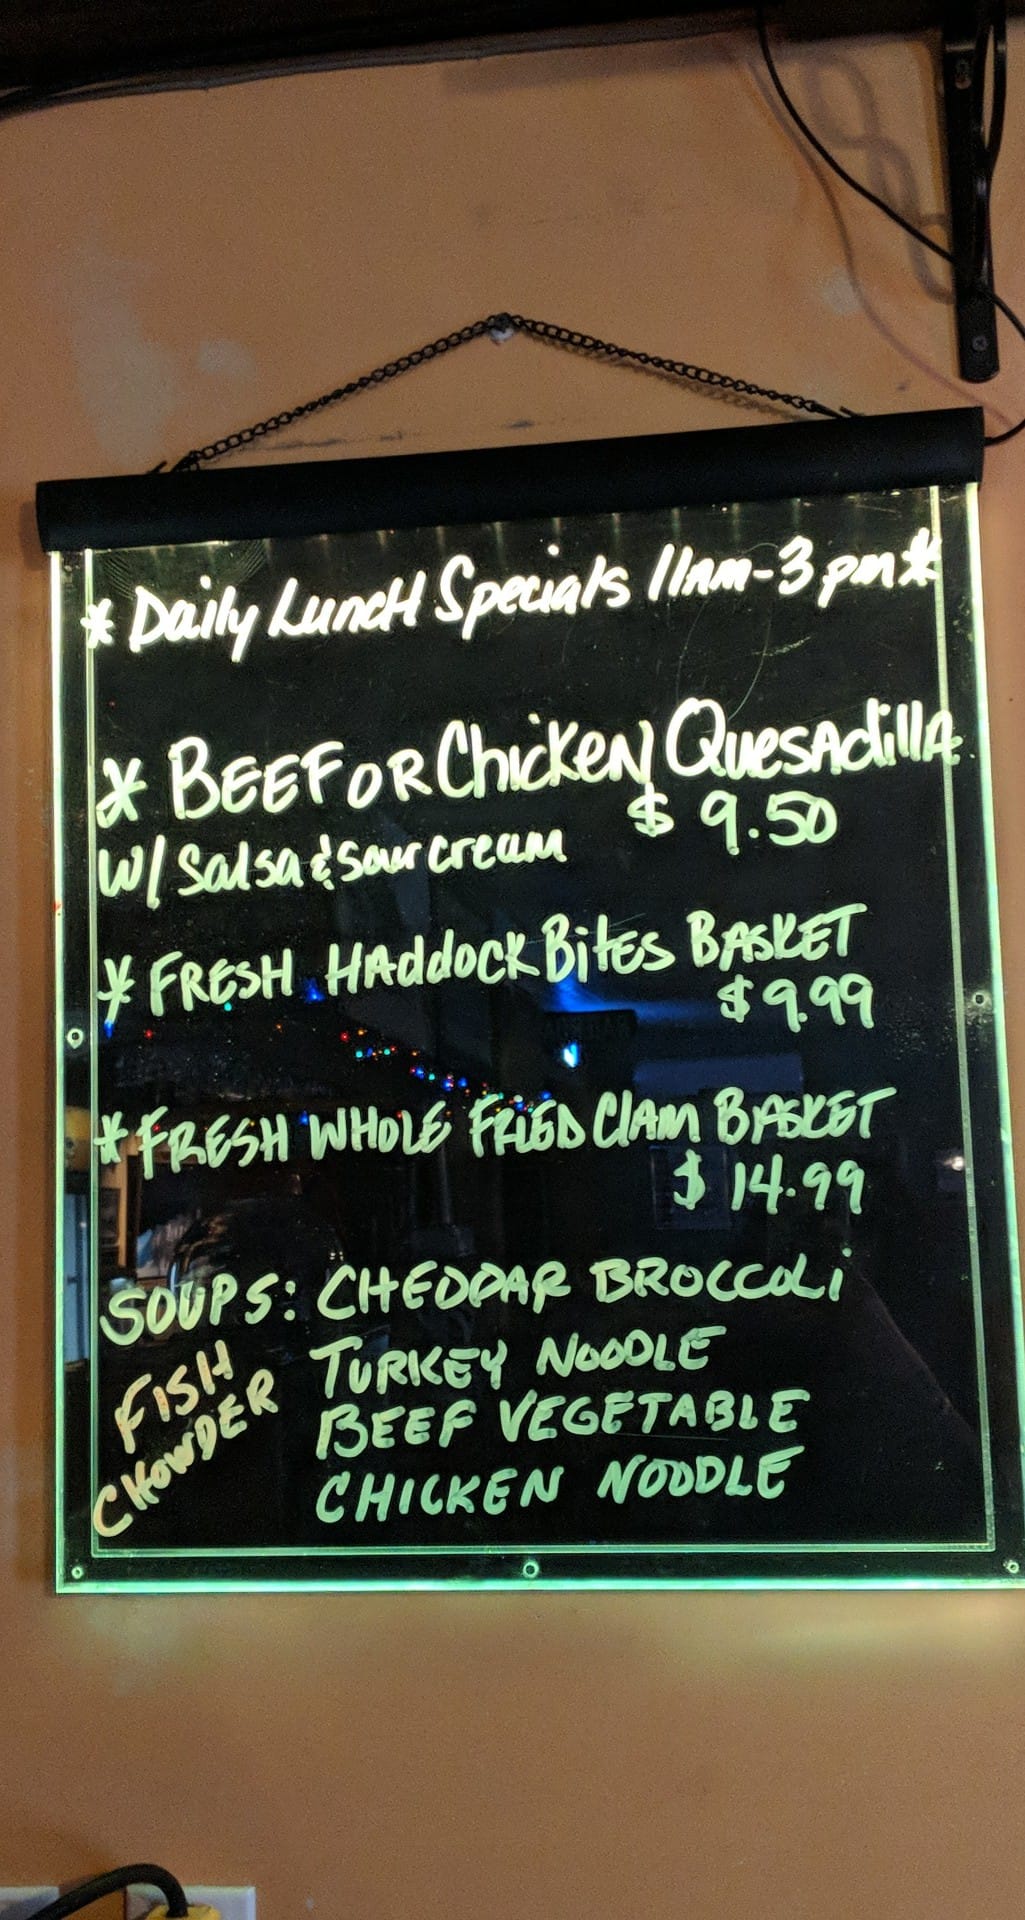 * Daily LuncH Specials 11am-3pm *
* BEEF OR Chicken Quesadilla
W/ Salsa & Sour cream $ 9.50
* FRESH HADDOCK Bites BASKET
$9.99
* FRESH WHOLE FRIED Clam BASKET
$ 14.99
SOUPS: CHEDDAR BROCCOLi
FISH CHOWDER
TURKEY NOODLE
BEEF VEGETABLE
CHICKEN NOODLE